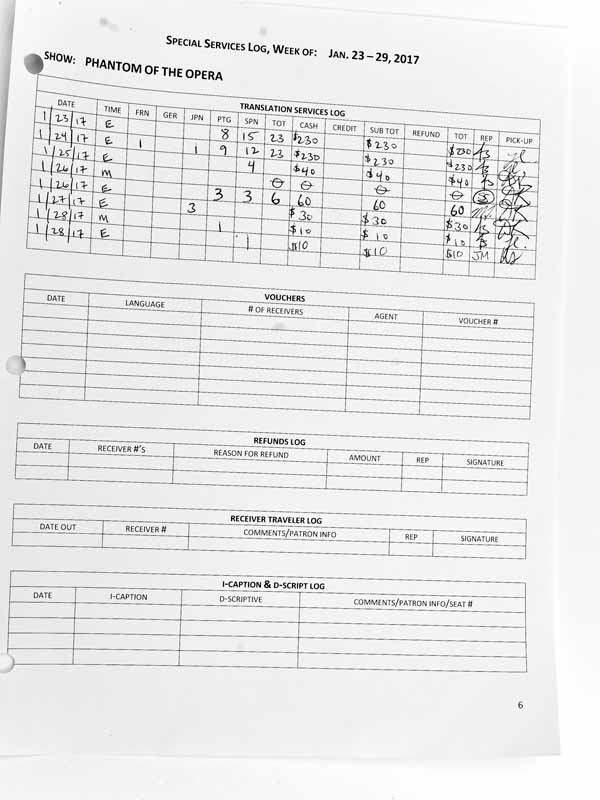 SPECIAL SERVICES LOG, WEEK OF: JAN. 23 – 29, 2017
SHOW: PHANTOM OF THE OPERA
TRANSLATION SERVICES LOG
DATE TIME FRN GER JPN PTG SPN TOT CASH CREDIT SUB TOT REFUND TOT REP PICK-UP
1/23/17 E 8 15 23 $230 $230 $230
1/24/17 E 1 1 9 12 23 $230 $230 $230
1/25/17 E 4 $40 $40 $40
1/26/17 M 0 0 0 0
1/26/17 E 3 3 6 60 60 60
1/27/17 E 3 $30 $30 $30
1/28/17 M 1 $10 $10 $10
1/28/17 E 1 $10 $10 $10 JM
VOUCHERS
DATE LANGUAGE # OF RECEIVERS AGENT VOUCHER #
REFUNDS LOG
DATE RECEIVER #'S REASON FOR REFUND AMOUNT REP SIGNATURE
RECEIVER TRAVELER LOG
DATE OUT RECEIVER # COMMENTS/PATRON INFO REP SIGNATURE
I-CAPTION & D-SCRIPT LOG
DATE I-CAPTION D-SCRIPTIVE COMMENTS/PATRON INFO/SEAT #
6